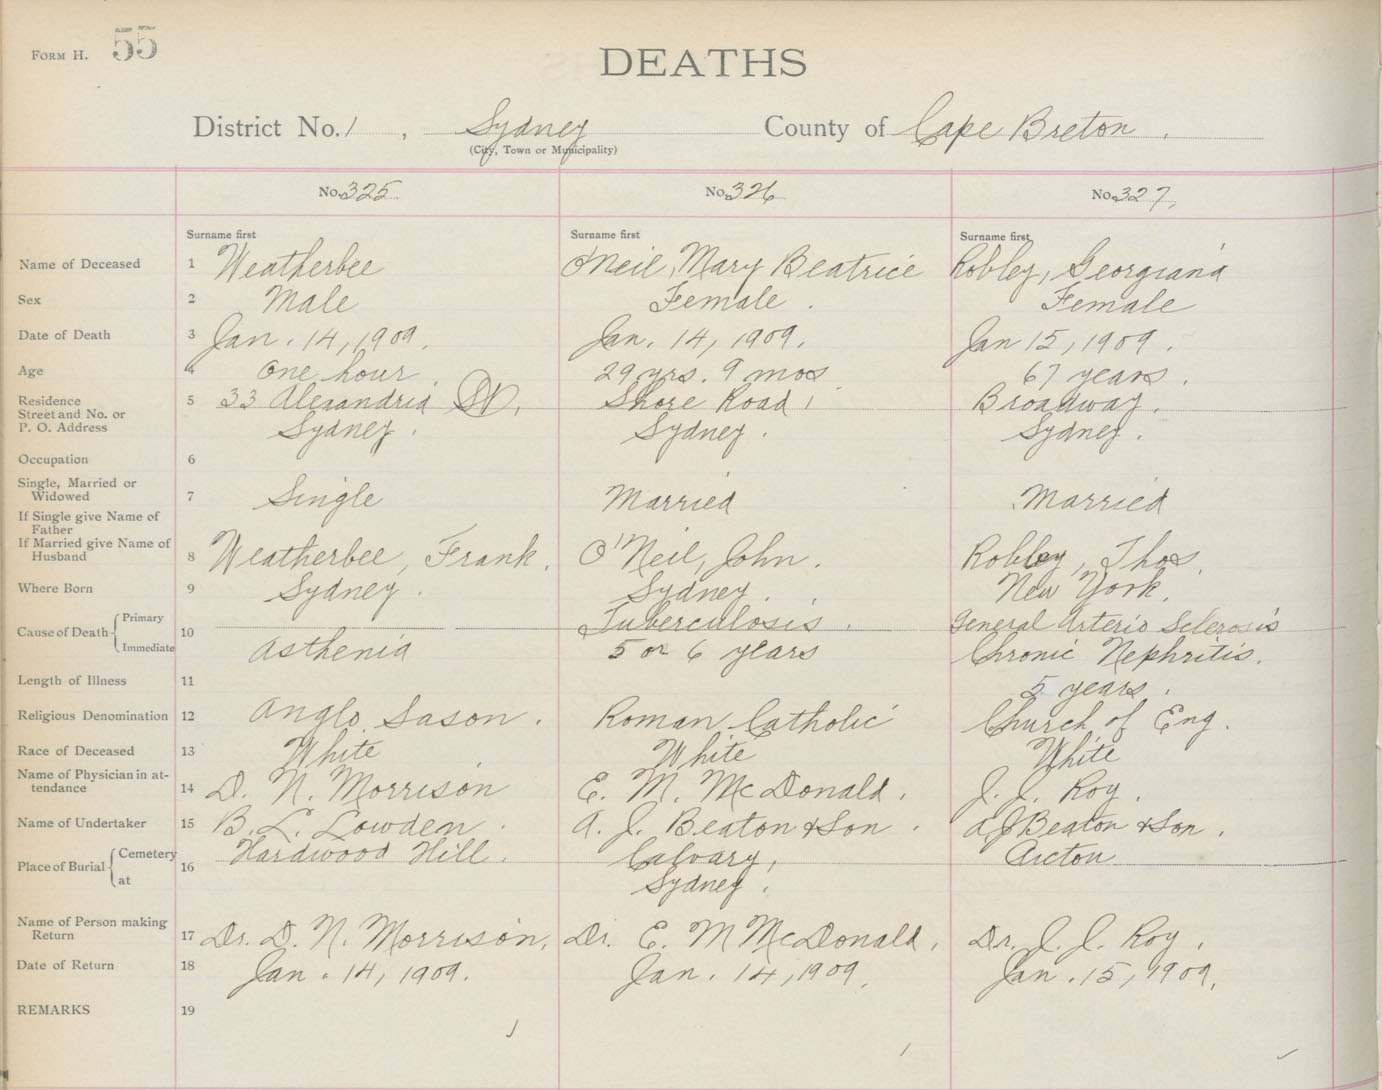 FORM H. 55
DEATHS
District No. 1, Sydney County of Cape Breton.
(City, Town or Municipality)
No. 325 No. 326 No. 327,
Surname first Surname first Surname first
Name of Deceased 1 Weatherbee O'Neil, Mary Beatrice Robley, Georgiana
Sex 2 Male Female. Female
Date of Death 3 Jan. 14, 1909. Jan. 14, 1909. Jan 15, 1909.
Age 4 One hour. 29 yrs. 9 mos 67 years.
Residence 5 33 Alexandria St, Shore Road, Broadway.
Street and No. or
P. O. Address Sydney. Sydney. Sydney.
Occupation 6
Single, Married or
Widowed 7 Single Married Married
If Single give Name of
Father
If Married give Name of
Husband 8 Weatherbee, Frank. O'Neil, John. Robley, Thos.
Where Born 9 Sydney. Sydney. New York.
Cause of Death Primary 10 Tuberculosis. General Arterio Sclerosis
Immediate Asthenia 5 or 6 years Chronic Nephritis.
Length of Illness 11 5 years.
Religious Denomination 12 Anglo Sason. Roman Catholic Church of Eng.
Race of Deceased 13 White White White
Name of Physician in at-
tendance 14 D. N. Morrison E. M. McDonald. J. J. Roy.
Name of Undertaker 15 B. L. Lowden. A. J. Beaton & Son. A J Beaton & Son.
Place of Burial Cemetery 16 Hardwood Hill. Calvary, Arcton
at Sydney.
Name of Person making
Return 17 Dr. D. N. Morrison, Dr. E. M McDonald, Dr. J. J. Roy,
Date of Return 18 Jan. 14, 1909. Jan. 14, 1909, Jan. 15, 1909,
REMARKS 19